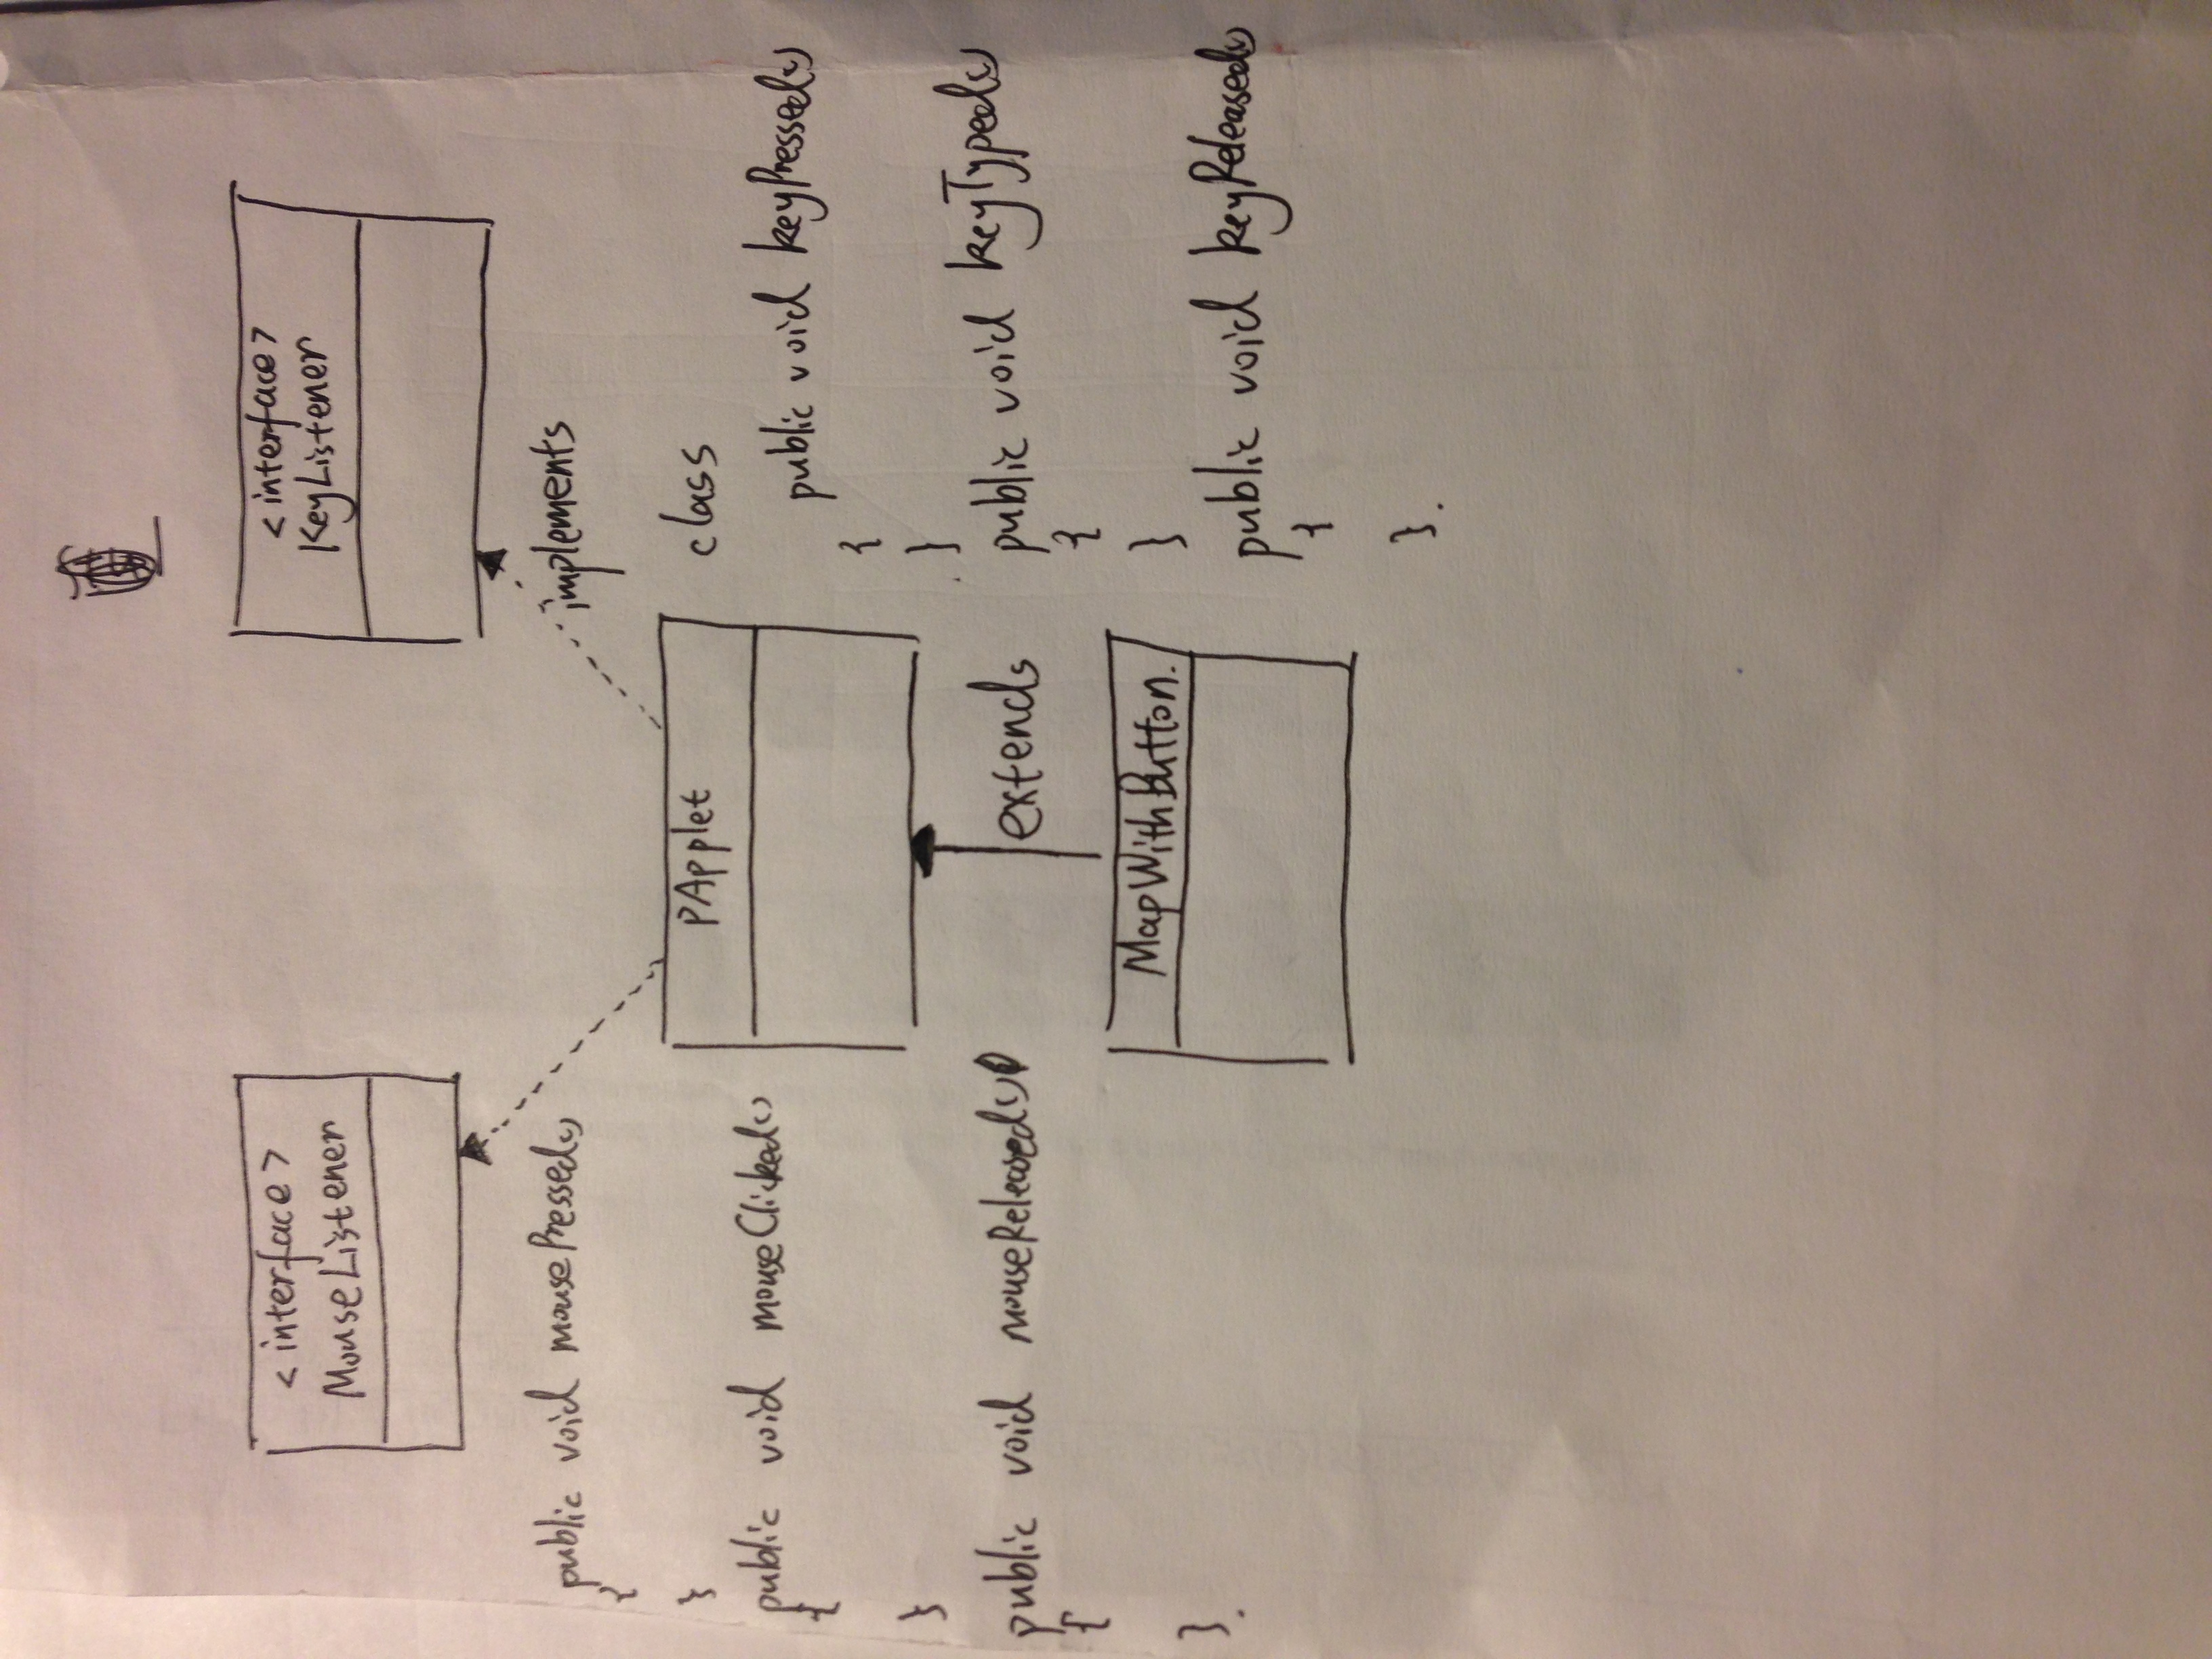 <interface>
MouseListener
<interface>
KeyListener
public void mousePressed()
{
}
public void mouseClicked()
{
}
public void mouseReleased()
{
}.
implements
PApplet
class
extends
MapWithButton.
public void keyPressed()
{
}
public void keyTyped()
{
}
public void keyReleased()
{
}.